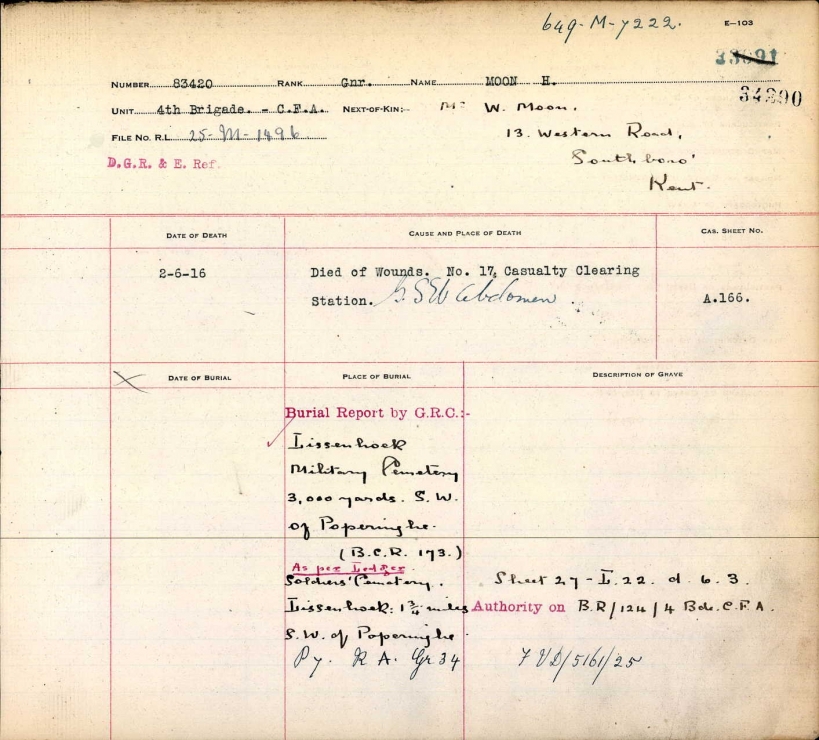 649-M-7222. E-103
33091
NUMBER 83420 RANK Gnr. NAME MOON H.
34290
UNIT 4th Brigade. - C.F.A. NEXT-OF-KIN:- Mr W. Moon.
13. Western Road,
FILE NO. R.L. 25-M-1496
Southboro'
D.G.R. & E. Ref.
Kent.
DATE OF DEATH CAUSE AND PLACE OF DEATH CAS. SHEET NO.
2-6-16 Died of Wounds. No. 17, Casualty Clearing
Station. G.S.W. Abdomen. A.166.
X DATE OF BURIAL PLACE OF BURIAL DESCRIPTION OF GRAVE
Burial Report by G.R.C.:-
Lissenhoek
Military Cemetery
3,000 yards. S.W.
of Poperinghe.
(B.C.R. 173.)
As per Ledger.
Soldiers' Cemetery. Sheet 27-L.22. d. 6. 3.
Lissenhoek. 1¾ miles Authority on B.R/124/4 Bde. C.F.A.
S.W. of Poperinghe
R A. Gr 34 7 VD/5161/25